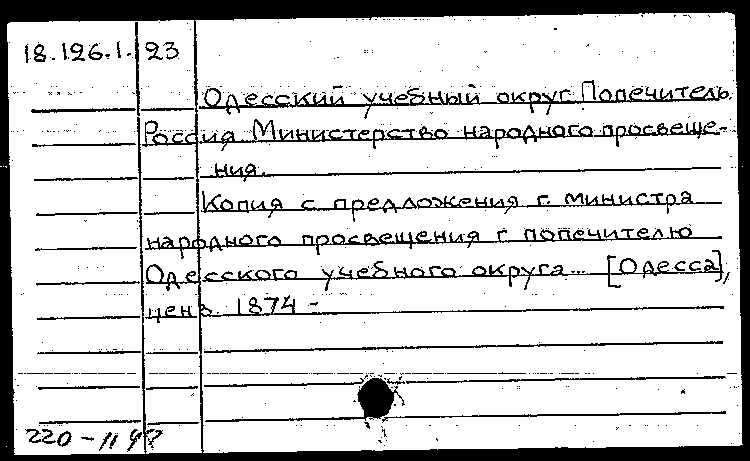 18.126.1. 23
Одесский учебный округ. Попечитель.
Россия. Министерство народного просвеще-
ния.
Копия с предложения г. министра
народного просвещения г. попечителю
Одесского учебного округа... [Одесса],
ценз. 1874 -
220-11